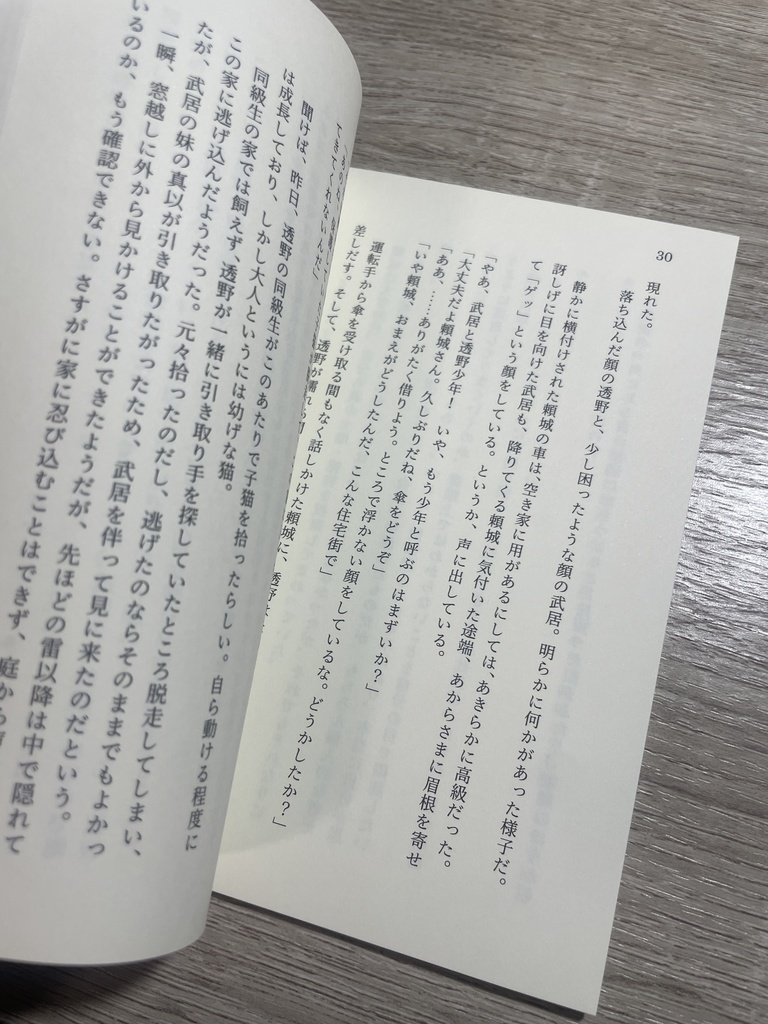 30
現れた。
落ち込んだ顔の透野と、少し困ったような顔の武居。明らかに何かがあった様子だ。
静かに横付けされた頼城の車は、空き家に用があるにしては、あきらかに高級だった。
訝しげに目を向けた武居も、降りてくる頼城に気付いた途端、あからさまに眉根を寄せ
て「ゲッ」という顔をしている。というか、声に出している。
「やあ、武居と透野少年！　いや、もう少年と呼ぶのはまずいか？」
「大丈夫だよ頼城さん。久しぶりだね、傘をどうぞ」
「ああ、……ありがたく借りよう。ところで浮かない顔をしているな。どうかしたか？」
「いや頼城、おまえがどうしたんだ、こんな住宅街で」
運転手から傘を受け取る間もなく話しかけた頼城に、透野は
差しだす。そして、透野が濡れ
てきてくれないんだ」
聞けば、昨日、透野の同級生がこのあたりで子猫を拾ったらしい。自ら動ける程度に
は成長しており、しかし大人というには幼げな猫。
同級生の家では飼えず、透野が一緒に引き取り手を探していたところ脱走してしまい、
この家に逃げ込んだようだった。元々拾ったのだし、逃げたのならそのままでもよかっ
たが、武居の妹の真以が引き取りたがったため、武居を伴って見に来たのだという。
一瞬、窓越しに外から見かけることができたようだが、先ほどの雷以降は中で隠れて
いるのか、もう確認できない。さすがに家に忍び込むことはできず、庭から